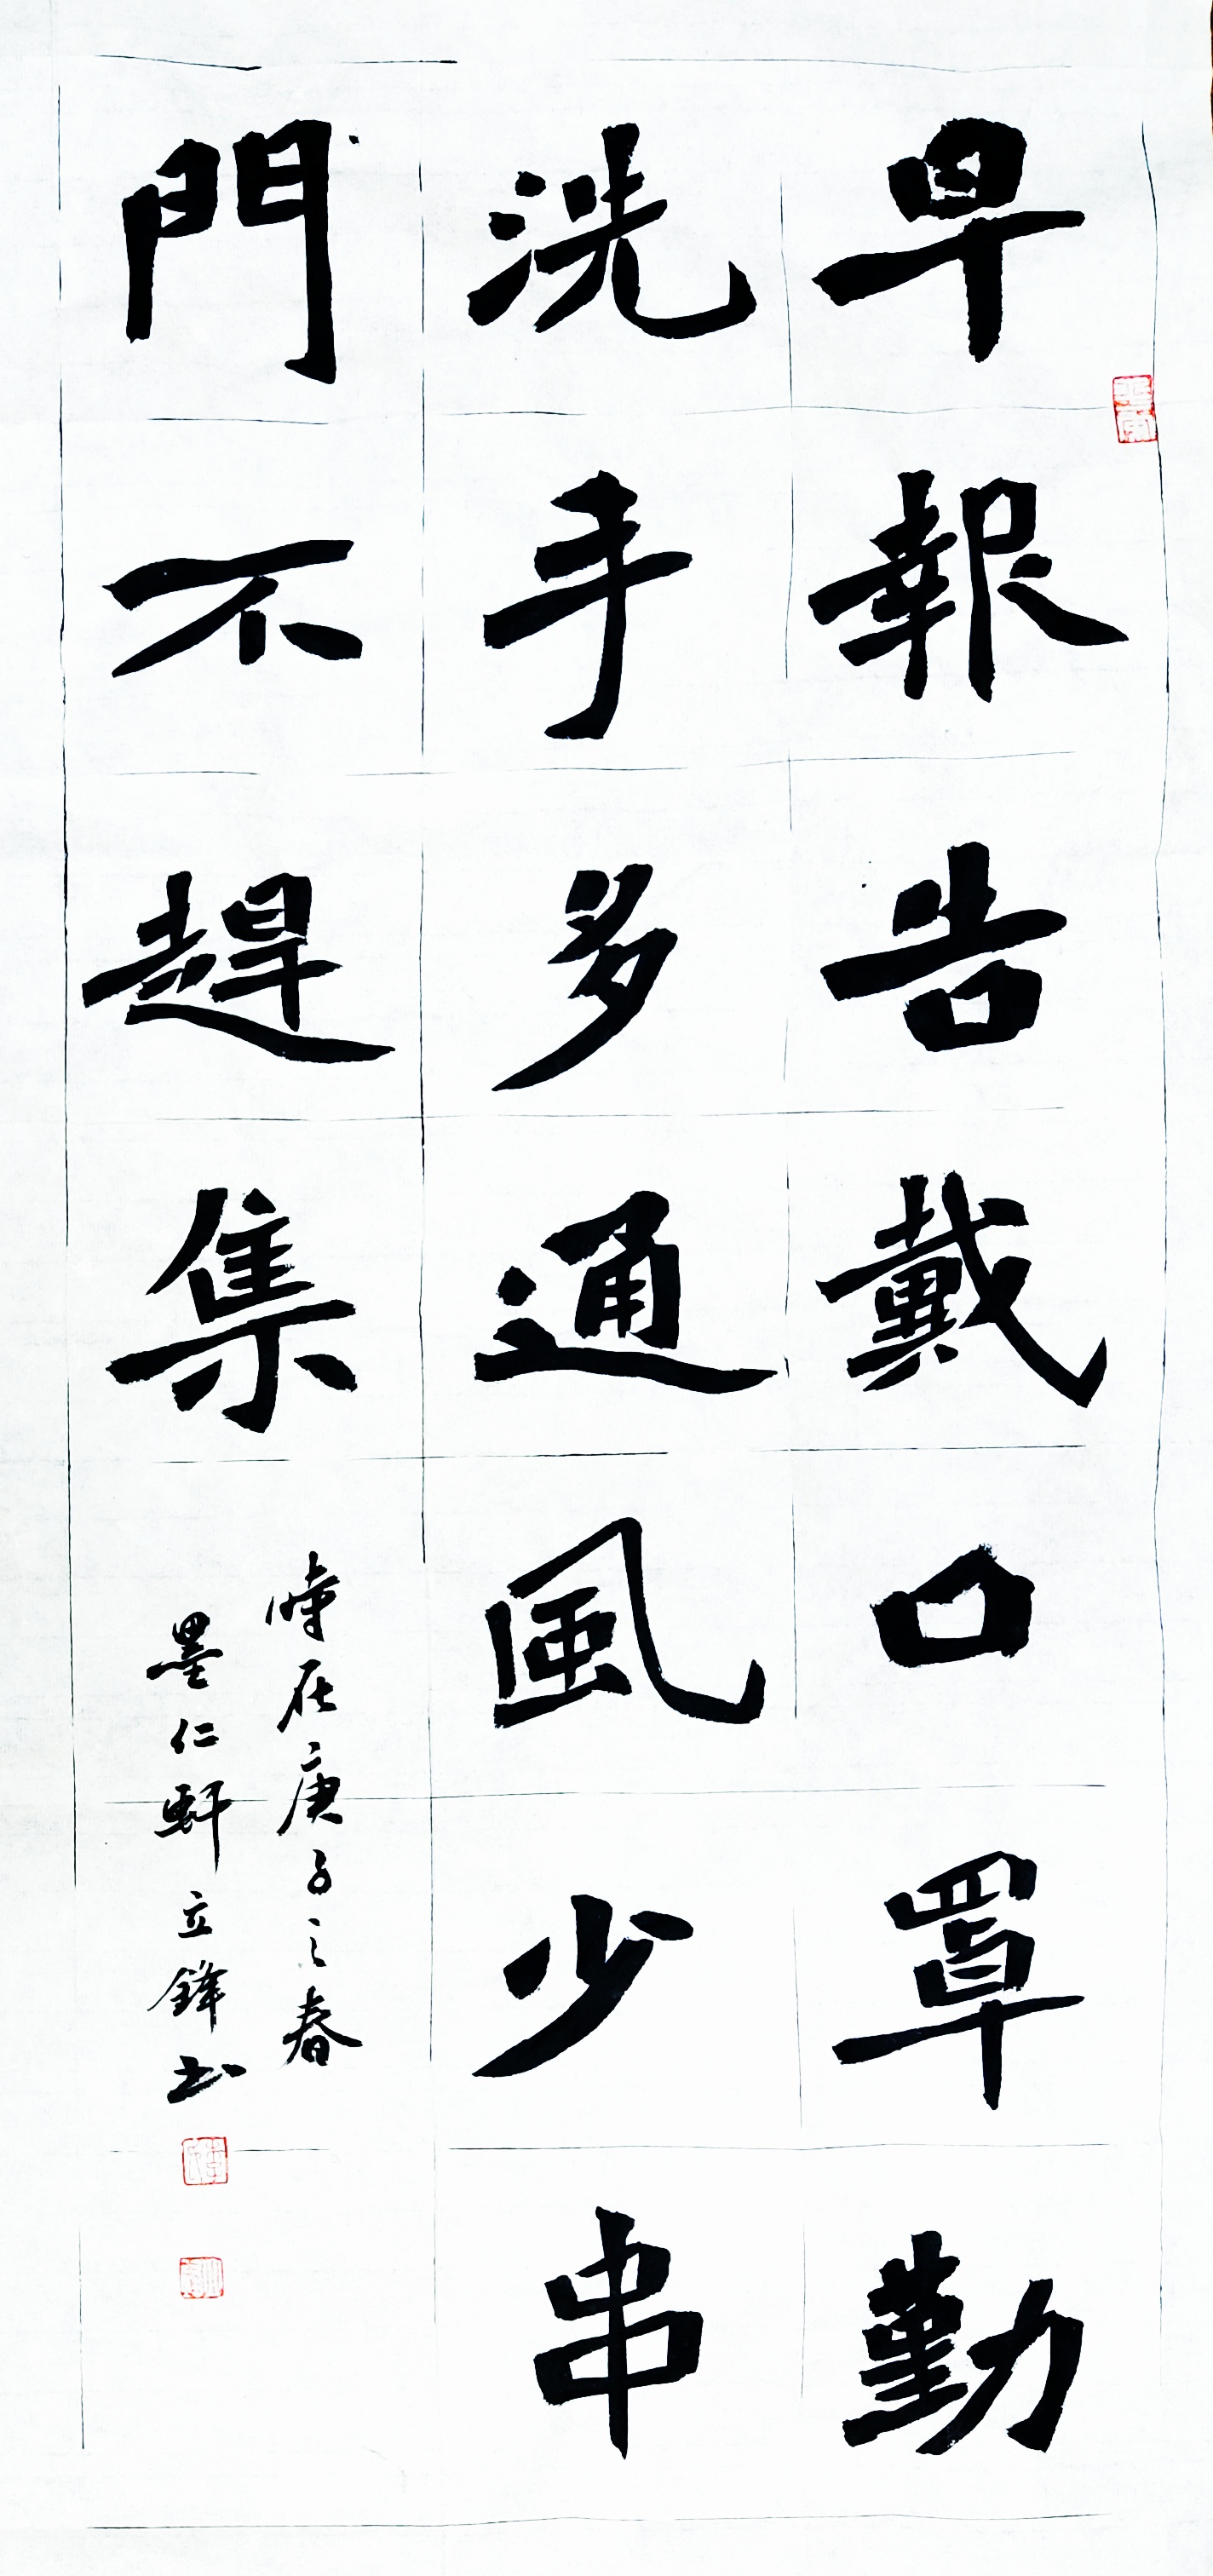 早報告戴口罩勤
洗手多通風少串
門不趕集
時在庚子之春
墨仁軒立鋒书